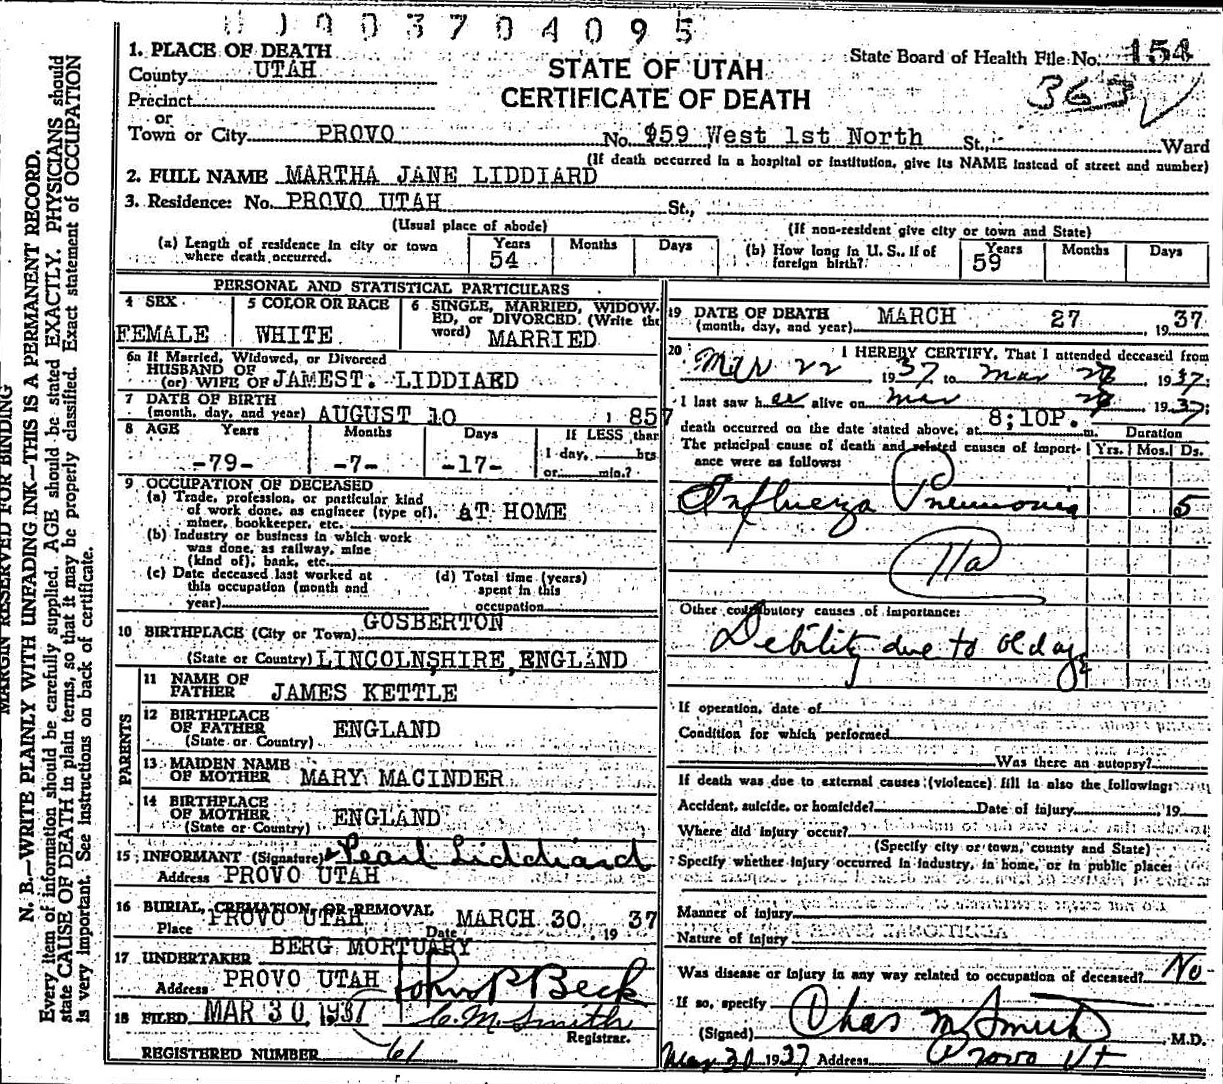 1003704095
1. PLACE OF DEATH
County UTAH
STATE OF UTAH
CERTIFICATE OF DEATH
State Board of Health File No. 154
363
Precinct
or
Town or City PROVO No. 959 West 1st North St., Ward
(If death occurred in a hospital or institution, give its NAME instead of street and number)
2. FULL NAME MARTHA JANE LIDDIARD
3. Residence: No. PROVO UTAH St.,
(Usual place of abode) (If non-resident give city or town and State)
(a) Length of residence in city or town where death occurred. Years 54 Months Days
(b) How long in U. S., if of foreign birth? Years 59 Months Days
PERSONAL AND STATISTICAL PARTICULARS
4 SEX FEMALE
5 COLOR OR RACE WHITE
6 SINGLE, MARRIED, WIDOW-
ED, or DIVORCED. (Write the
word) MARRIED
6a If Married, Widowed, or Divorced
HUSBAND OF
(or) WIFE OF JAMEST. LIDDIARD
7 DATE OF BIRTH
(month, day, and year) AUGUST 10 1857
8 AGE Years Months Days If LESS than
-79- -7- -17- 1 day, hrs
or min.?
9 OCCUPATION OF DECEASED
(a) Trade, profession, or particular kind
of work done, as engineer (type of), AT HOME
miner, bookkeeper, etc.
(b) Industry or business in which work
was done, as railway, mine
(kind of), bank, etc.
(c) Date deceased last worked at
this occupation (month and
year)
(d) Total time (years)
spent in this
occupation
10 BIRTHPLACE (City or Town) GOSBERTON
(State or Country) LINCOLNSHIRE, ENGLAND
PARENTS
11 NAME OF
FATHER JAMES KETTLE
12 BIRTHPLACE
OF FATHER ENGLAND
(State or Country)
13 MAIDEN NAME
OF MOTHER MARY MACINDER
14 BIRTHPLACE
OF MOTHER ENGLAND
(State or Country)
15 INFORMANT (Signature) Pearl Liddiard
Address PROVO UTAH
16 BURIAL, CREMATION, OR REMOVAL
Place PROVO UTAH Date MARCH 30, 19 37
17 UNDERTAKER BERG MORTUARY
Address PROVO UTAH John P Beck
18 FILED MAR 30 1937 C. M. Smith
Registrar.
REGISTERED NUMBER 61
19 DATE OF DEATH
(month, day, and year) MARCH 27 1937
20 I HEREBY CERTIFY, That I attended deceased from
Mar 22 1937 to Mar 1937
I last saw her alive on Mar 1937
death occurred on the date stated above, at 8;10P. m.
The principal cause of death and related causes of import-
ance were as follows:
Duration
Yrs. Mos. Ds.
Influenza Pneumonia 5
11a
Other contributory causes of importance:
Debility due to old age
If operation, date of
Condition for which performed
Was there an autopsy?
If death was due to external causes (violence) fill in also the following:
Accident, suicide, or homicide? Date of injury 19
Where did injury occur?
(Specify city or town, county and State)
Specify whether injury occurred in industry, in home, or in public place:
Manner of injury
Nature of injury
Was disease or injury in any way related to occupation of deceased? No
If so, specify
(Signed) Chas M Smith M.D.
Mar 30 1937 Address Provo Ut
MARGIN RESERVED FOR BINDING
N. B.—WRITE PLAINLY WITH UNFADING INK—THIS IS A PERMANENT RECORD.
Every item of information should be carefully supplied. AGE should be stated EXACTLY. PHYSICIANS should
state CAUSE OF DEATH in plain terms, so that it may be properly classified. Exact statement of OCCUPATION
is very important. See instructions on back of certificate.